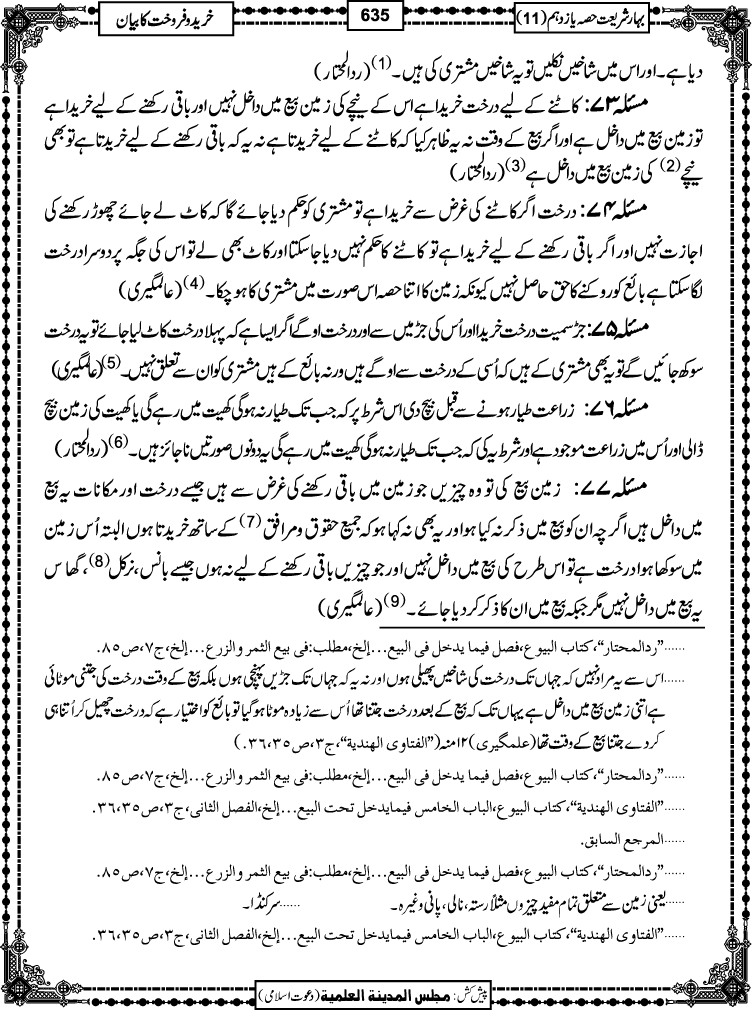 بہارِ شریعت حصہ یازدہم (11)
635
خرید و فروخت کا بیان
دیا ہے۔ اور اس میں شاخیں نکلیں تو یہ شاخیں مشتری کی ہیں۔ (1) (ردالمحتار)
مسئلہ ۷۳: کاٹنے کے لیے درخت خریدا ہے اس کے نیچے کی زمین بیع میں داخل نہیں اور باقی رکھنے کے لیے خریدا ہے
تو زمین بیع میں داخل ہے اور اگر بیع کے وقت نہ یہ ظاہر کیا کہ کاٹنے کے لیے خریدتا ہے نہ یہ کہ باقی رکھنے کے لیے خریدتا ہے تو بھی
نیچے (2) کی زمین بیع میں داخل ہے (3) (ردالمحتار)
مسئلہ ۷۴: درخت اگر کاٹنے کی غرض سے خریدا ہے تو مشتری کو حکم دیا جائے گا کہ کاٹ لے جائے چھوڑ رکھنے کی
اجازت نہیں اور اگر باقی رکھنے کے لیے خریدا ہے تو کاٹنے کا حکم نہیں دیا جاسکتا اور کاٹ بھی لے تو اس کی جگہ پر دوسرا درخت
لگا سکتا ہے بائع کو روکنے کا حق حاصل نہیں کیونکہ زمین کا اتنا حصہ اس صورت میں مشتری کا ہو چکا۔ (4) (عالمگیری)
مسئلہ ۷۵: جڑ سمیت درخت خریدا اور اُس کی جڑ میں سے اور درخت اوگے اگر ایسا ہے کہ پہلا درخت کاٹ لیا جائے تو یہ درخت
سوکھ جائیں گے تو یہ بھی مشتری کے ہیں کہ اُسی کے درخت سے اوگے ہیں ورنہ بائع کے ہیں مشتری کو ان سے تعلق نہیں۔ (5) (عالمگیری)
مسئلہ ۷۶: زراعت طیار ہونے سے قبل بیچ دی اس شرط پر کہ جب تک طیار نہ ہوگی کھیت میں رہے گی یا کھیت کی زمین بیچ
ڈالی اور اُس میں زراعت موجود ہے اور شرط یہ کی کہ جب تک طیار نہ ہوگی کھیت میں رہے گی یہ دونوں صورتیں ناجائز ہیں۔ (6) (ردالمحتار)
مسئلہ ۷۷: زمین بیع کی تو وہ چیزیں جو زمین میں باقی رکھنے کی غرض سے ہیں جیسے درخت اور مکانات یہ بیع
میں داخل ہیں اگرچہ ان کو بیع میں ذکر نہ کیا ہو اور یہ بھی نہ کہا ہو کہ جمیع حقوق و مرافق (7) کے ساتھ خریدتا ہوں البتہ اُس زمین
میں سوکھا ہوا درخت ہے تو اس طرح کی بیع میں داخل نہیں اور جو چیزیں باقی رکھنے کے لیے نہ ہوں جیسے بانس، نرکل (8)، گھاس
یہ بیع میں داخل نہیں مگر جبکہ بیع میں ان کا ذکر کر دیا جائے۔ (9) (عالمگیری)
......"ردالمحتار"، کتاب البیوع، فصل فیما یدخل فی البیع...إلخ، مطلب: فی بیع الثمر والزرع...إلخ، ج۷، ص۸۵.
......اس سے یہ مراد نہیں کہ جہاں تک درخت کی شاخیں پھیلی ہوں اور نہ یہ کہ جہاں تک جڑیں پہنچی ہوں بلکہ بیع کے وقت درخت کی جتنی موٹائی
ہے اتنی زمین بیع میں داخل ہے یہاں تک کہ بیع کے بعد درخت جتنا تھا اُس سے زیادہ موٹا ہوگیا تو بائع کو اختیار ہے کہ درخت چھیل کر اُتنا ہی
کر دے جتنا بیع کے وقت تھا (علمگیری) ۱۲ منہ ("الفتاوی الھندیۃ"، ج۳، ص۳۵،۳۶.)
......"ردالمحتار"، کتاب البیوع، فصل فیما یدخل فی البیع...إلخ، مطلب: فی بیع الثمر والزرع...إلخ، ج۷، ص۸۵.
......"الفتاوی الھندیۃ"، کتاب البیوع، الباب الخامس فیما یدخل تحت البیع...إلخ، الفصل الثانی، ج۳، ص۳۵،۳۶.
......المرجع السابق.
......"ردالمحتار"، کتاب البیوع، فصل فیما یدخل فی البیع...إلخ، مطلب: فی بیع الثمر والزرع...إلخ، ج۷، ص۸۵.
......یعنی زمین سے متعلق تمام مفید چیزوں مثلاً رستہ، نالی، پانی وغیرہ۔ ......سرکنڈا۔
......"الفتاوی الھندیۃ"، کتاب البیوع، الباب الخامس فیما یدخل تحت البیع...إلخ، الفصل الثانی، ج۳، ص۳۵،۳۶.
پیش کش: مجلس المدینۃ العلمیۃ (دعوت اسلامی)